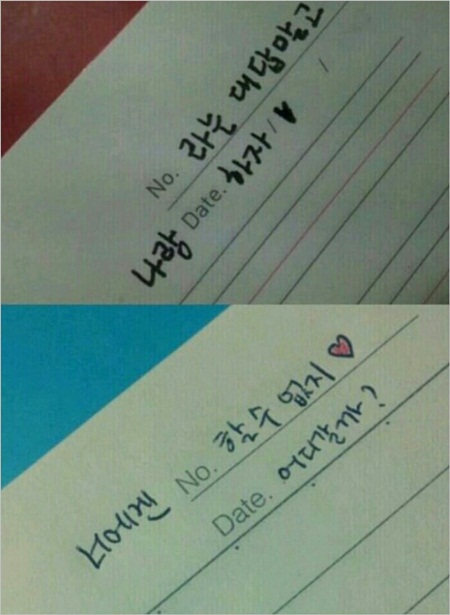 No. 라는 대답말고
나랑 Date. 하자 / ♥ /
너에겐 No. 할수 없지 ♥
Date. 어디갈까?